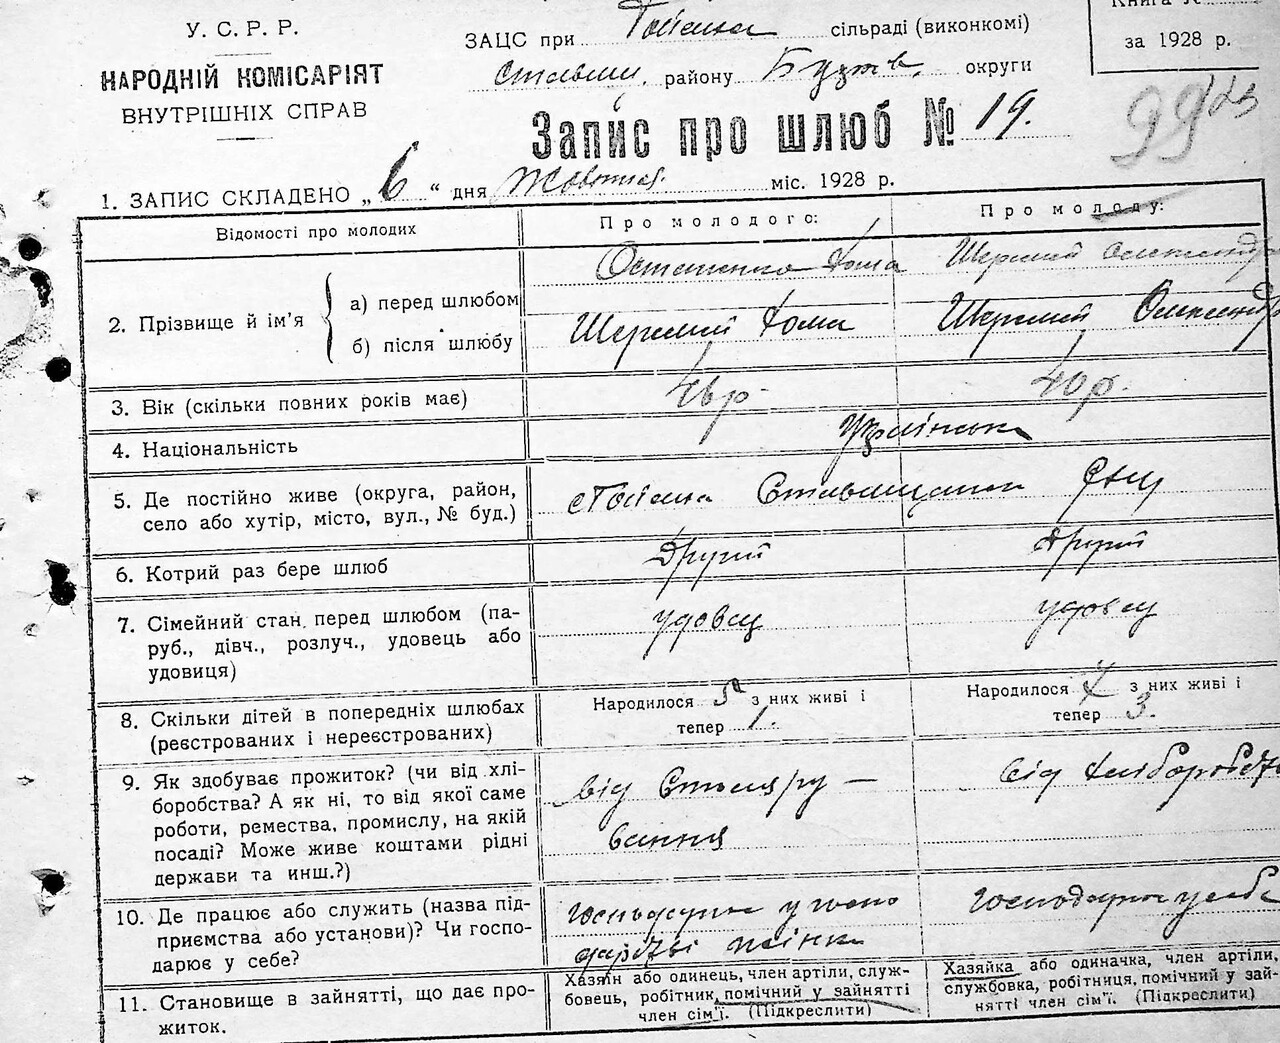 У. С. Р. Р.
НАРОДНІЙ КОМІСАРІЯТ
ВНУТРІШНІХ СПРАВ
ЗАЦС при сільраді (виконкомі)
району округи
Книга №
за 1928 р.
99
Запис про шлюб № 19.
1. ЗАПИС СКЛАДЕНО „6“ дня Жовтня міс. 1928 р.
Відомості про молодих
Про молодого:
Про молоду:
2. Прізвище й ім'я
а) перед шлюбом
Остапенко Хома
Олександра
б) після шлюбу
Хома
Олександра
3. Вік (скільки повних років має)
46 р.
40 р.
4. Національність
Українська
5. Де постійно живе (округа, район,
село або хутір, місто, вул., № буд.)
6. Котрий раз бере шлюб
Другий
Другий
7. Сімейний стан перед шлюбом (па-
руб., дівч., розлуч., удовець або
удовиця)
удовец
удовец
8. Скільки дітей в попередніх шлюбах
(реєстрованих і нереєстрованих)
Народилося 5 з них живі і
тепер 1.
Народилося 4 з них живі і
тепер 3.
9. Як здобуває прожиток? (чи від хлі-
боробства? А як ні, то від якої саме
роботи, ремества, промислу, на якій
посаді? Може живе коштами рідні
держави та инш.?)
від Столяру-
вання
від хліборобства
10. Де працює або служить (назва під-
приємства або установи)? Чи госпо-
дарює у себе?
Господарює у госпо
дарстві жінки
Господарює у себе
11. Становище в зайнятті, що дає про-
житок.
Хазяїн або одинець, член артіли, служ-
бовець, робітник, помічний у зайнятті
член сім'ї. (Підкреслити)
Хазяйка або одиначка, член артіли,
службовка, робітниця, помічний у зай-
нятті член сім'ї. (Підкреслити)